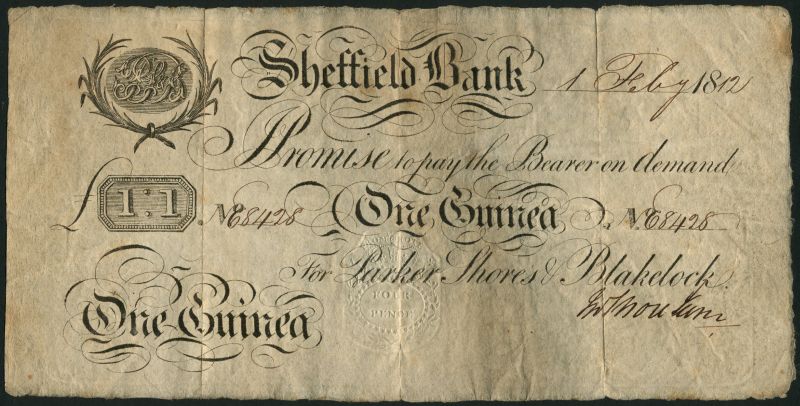 Sheffield Bank 1 Feby 1812
I Promise to pay the Bearer on demand
£ 1:1 . No 68428 One Guinea . No 68428
For Parker, Shores & Blakelock.
FOUR
PENCE
One Guinea